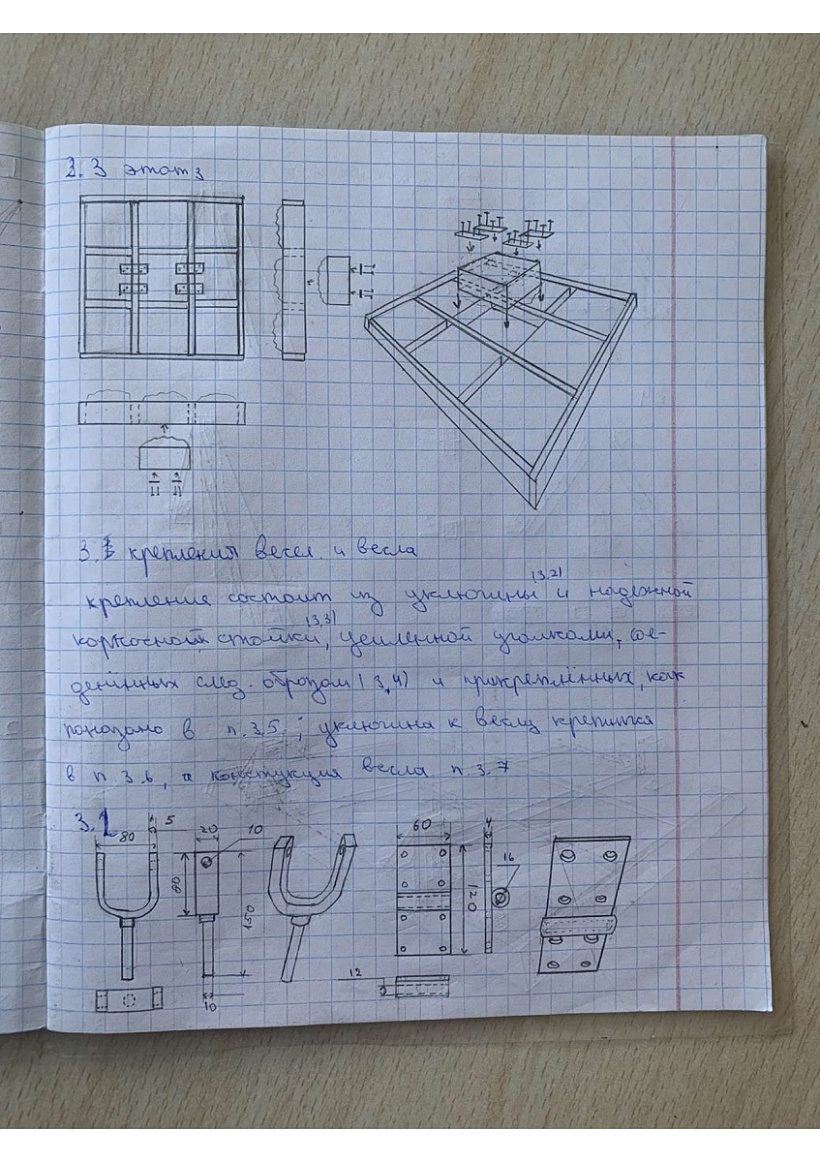 2.3 этап 3
3. крепления весел. и весла
(3.2)
крепление состоит из уключины и надежной
(3.3)
стойки, усиленной уголками, сое-
динённых след. образом (3.4) и прикреплённых, как
показано в п. 3.5. ; уключина к веслу крепится
в п 3.6, а конструкция весла п 3.7
3.1
80 5 20 10 60 4
80 150 120 16
10 12